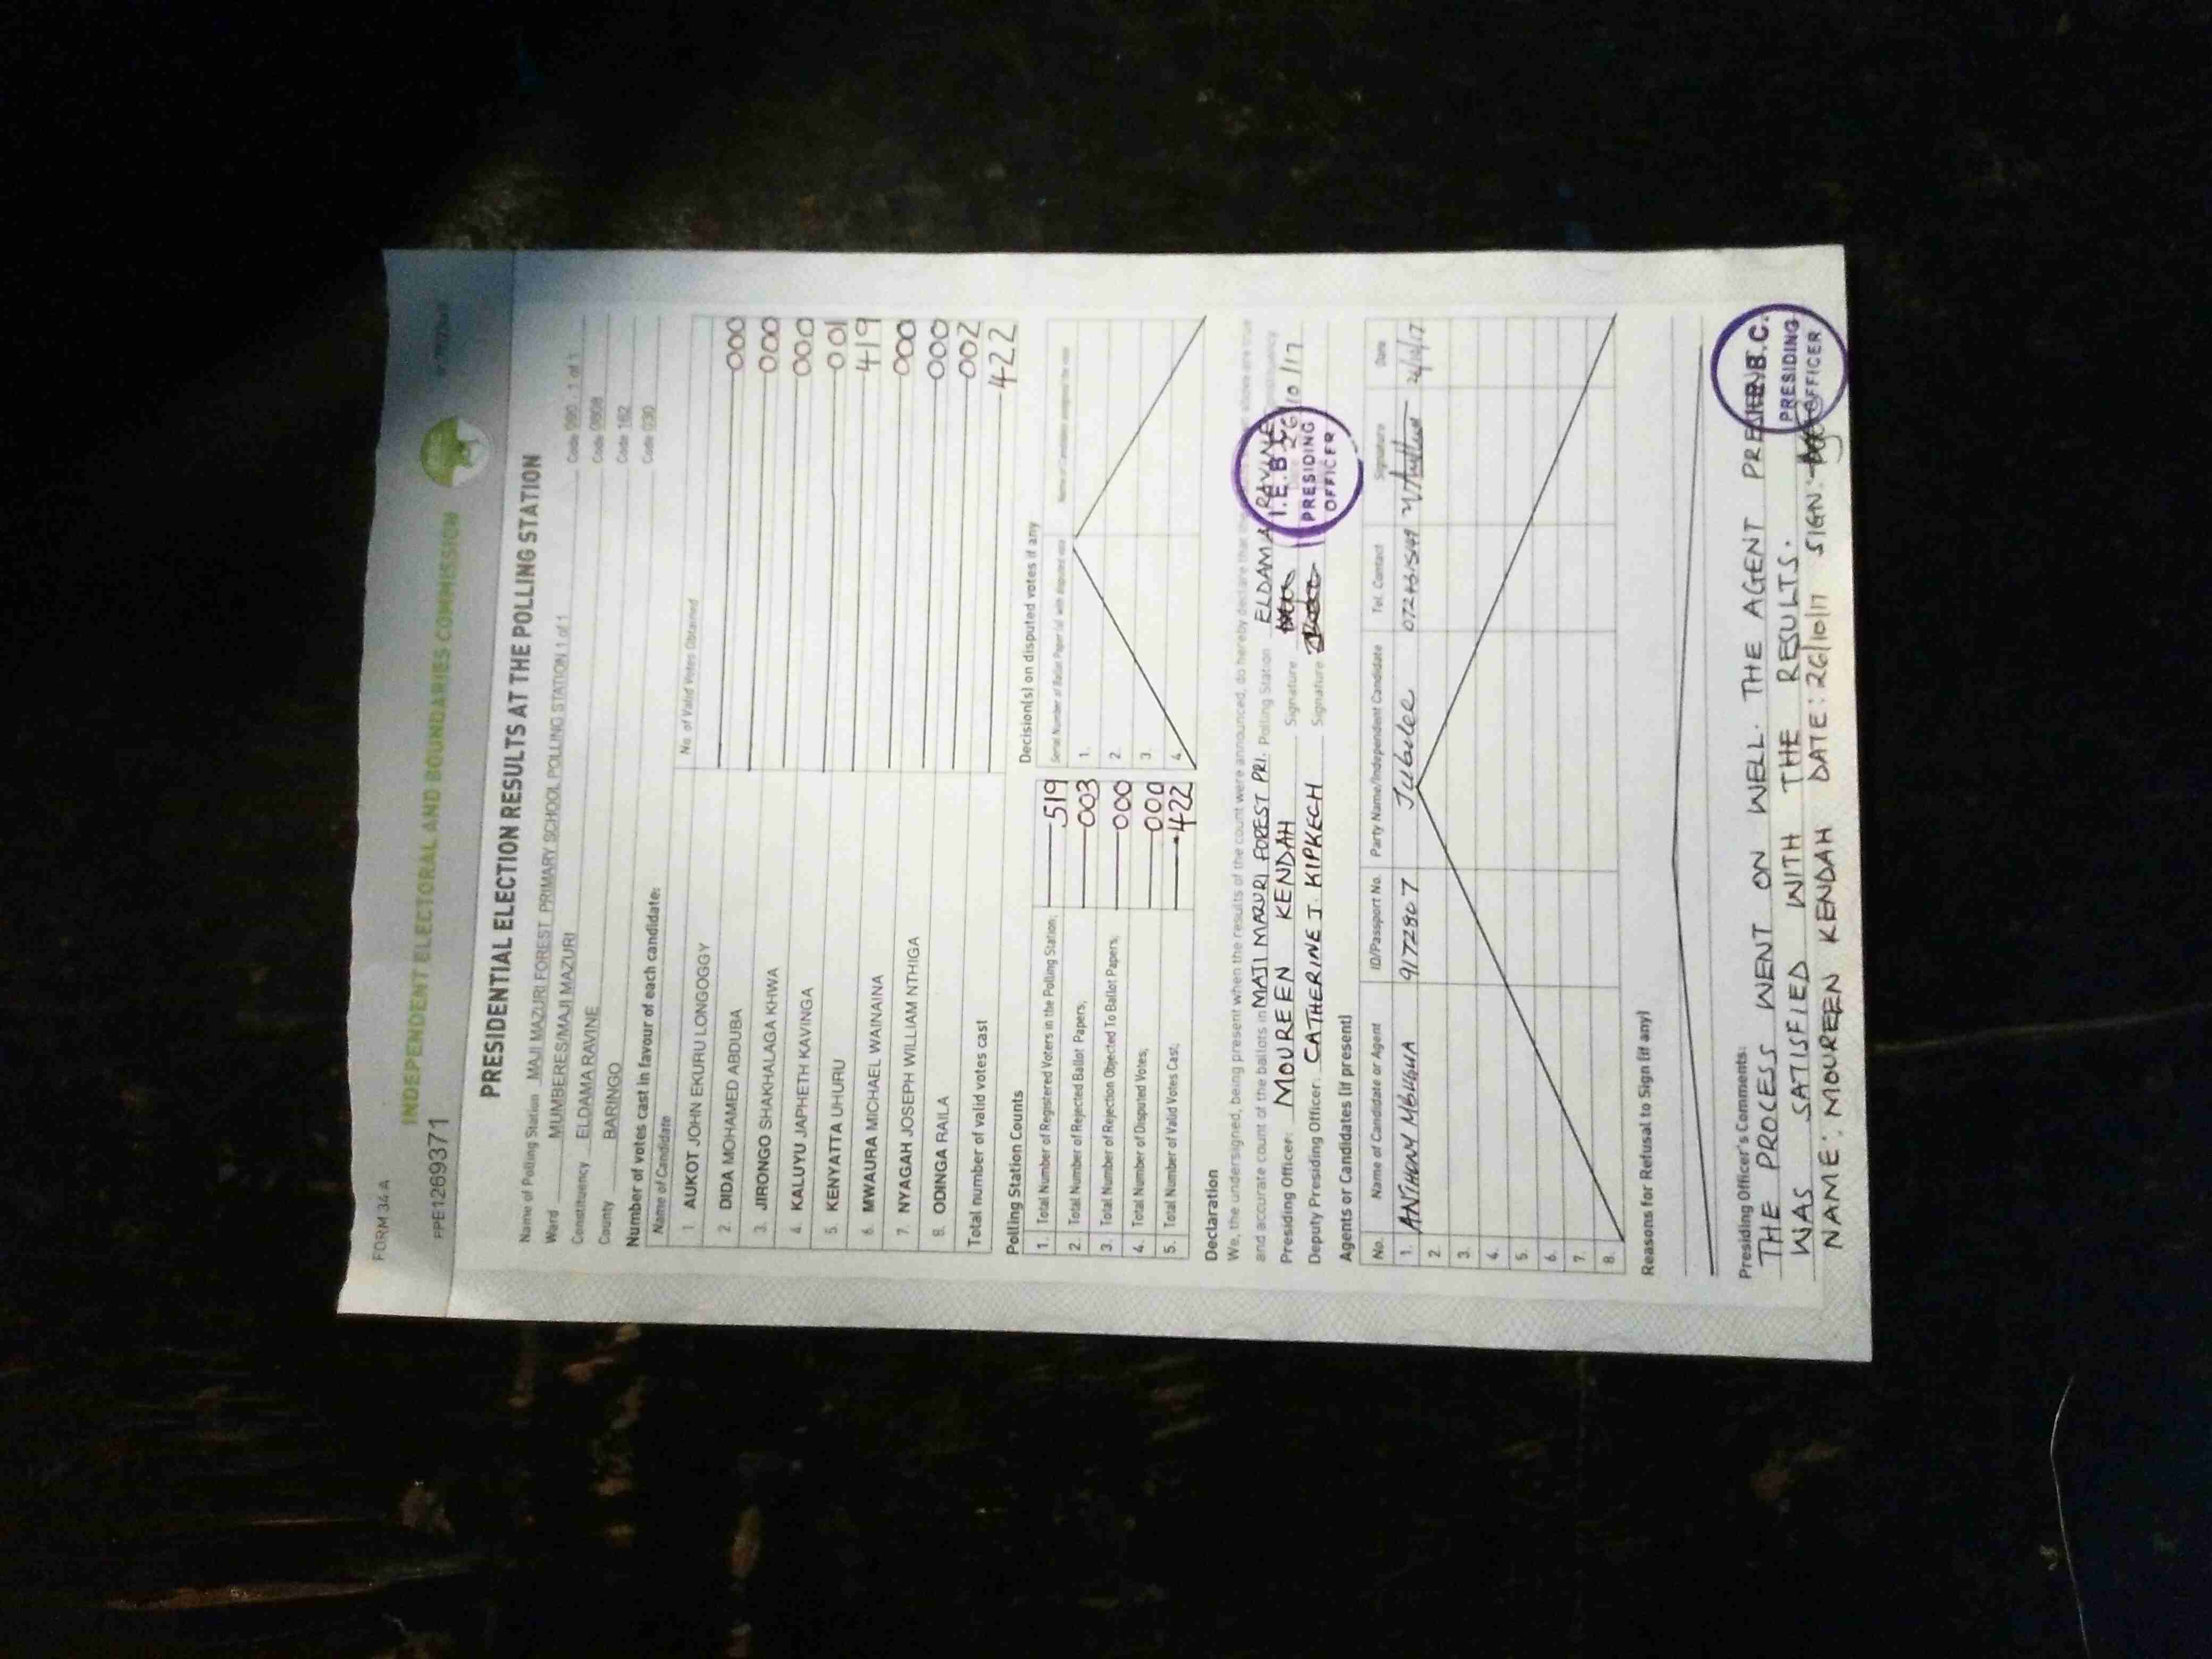 FORM 34 A
INDEPENDENT ELECTORAL AND BOUNDARIES COMMISSION
PPE1269371
PRESIDENTIAL ELECTION RESULTS AT THE POLLING STATION
Name of Polling Station MAJI MAZURI FOREST PRIMARY SCHOOL POLLING STATION 1 of 1 Code 090 . 1 of 1
Ward MUMBERES/MAJI MAZURI Code 0808
Constituency ELDAMA RAVINE Code 162
County BARINGO Code 030
Number of votes cast in favour of each candidate:
Name of Candidate No. of Valid Votes Obtained
1. AUKOT JOHN EKURU LONGOGGY 000
2. DIDA MOHAMED ABDUBA 000
3. JIRONGO SHAKHALAGA KHWA 000
4. KALUYU JAPHETH KAVINGA 001
5. KENYATTA UHURU 419
6. MWAURA MICHAEL WAINAINA 000
7. NYAGAH JOSEPH WILLIAM NTHIGA 000
8. ODINGA RAILA 002
Total number of valid votes cast 422
Polling Station Counts Decision(s) on disputed votes if any
1. Total Number of Registered Voters in the Polling Station; 519 Serial Number of Ballot Paper (s) with disputed vote
2. Total Number of Rejected Ballot Papers; 003 1.
3. Total Number of Rejection Objected To Ballot Papers; 000 2.
4. Total Number of Disputed Votes; 000 3.
5. Total Number of Valid Votes Cast; 422 4.
Declaration
We, the undersigned, being present when the results of the count were announced, do hereby declare that the above are true
and accurate count of the ballots in MAJI MAZURI FOREST PRI. Polling Station ELDAMA RAVINE
Presiding Officer: MOUREEN KENDAH Signature Date 26/10/17
Deputy Presiding Officer: CATHERINE J. KIPKECH Signature
I.E.B.C.
PRESIDING
OFFICER
Agents or Candidates (if present)
No. Name of Candidate or Agent ID/Passport No. Party Name/Independent Candidate Tel. Contact Signature Date
1. ANTHONY MBUGUA 9172907 Jubilee 26/10/17
2.
3.
4.
5.
6.
7.
8.
Reasons for Refusal to Sign (if any)
Presiding Officer's Comments:
THE PROCESS WENT ON WELL. THE AGENT PRESENT
WAS SATISFIED WITH THE RESULTS.
NAME: MOUREEN KENDAH DATE: 26/10/17 SIGN:
I.E.B.C.
PRESIDING
OFFICER